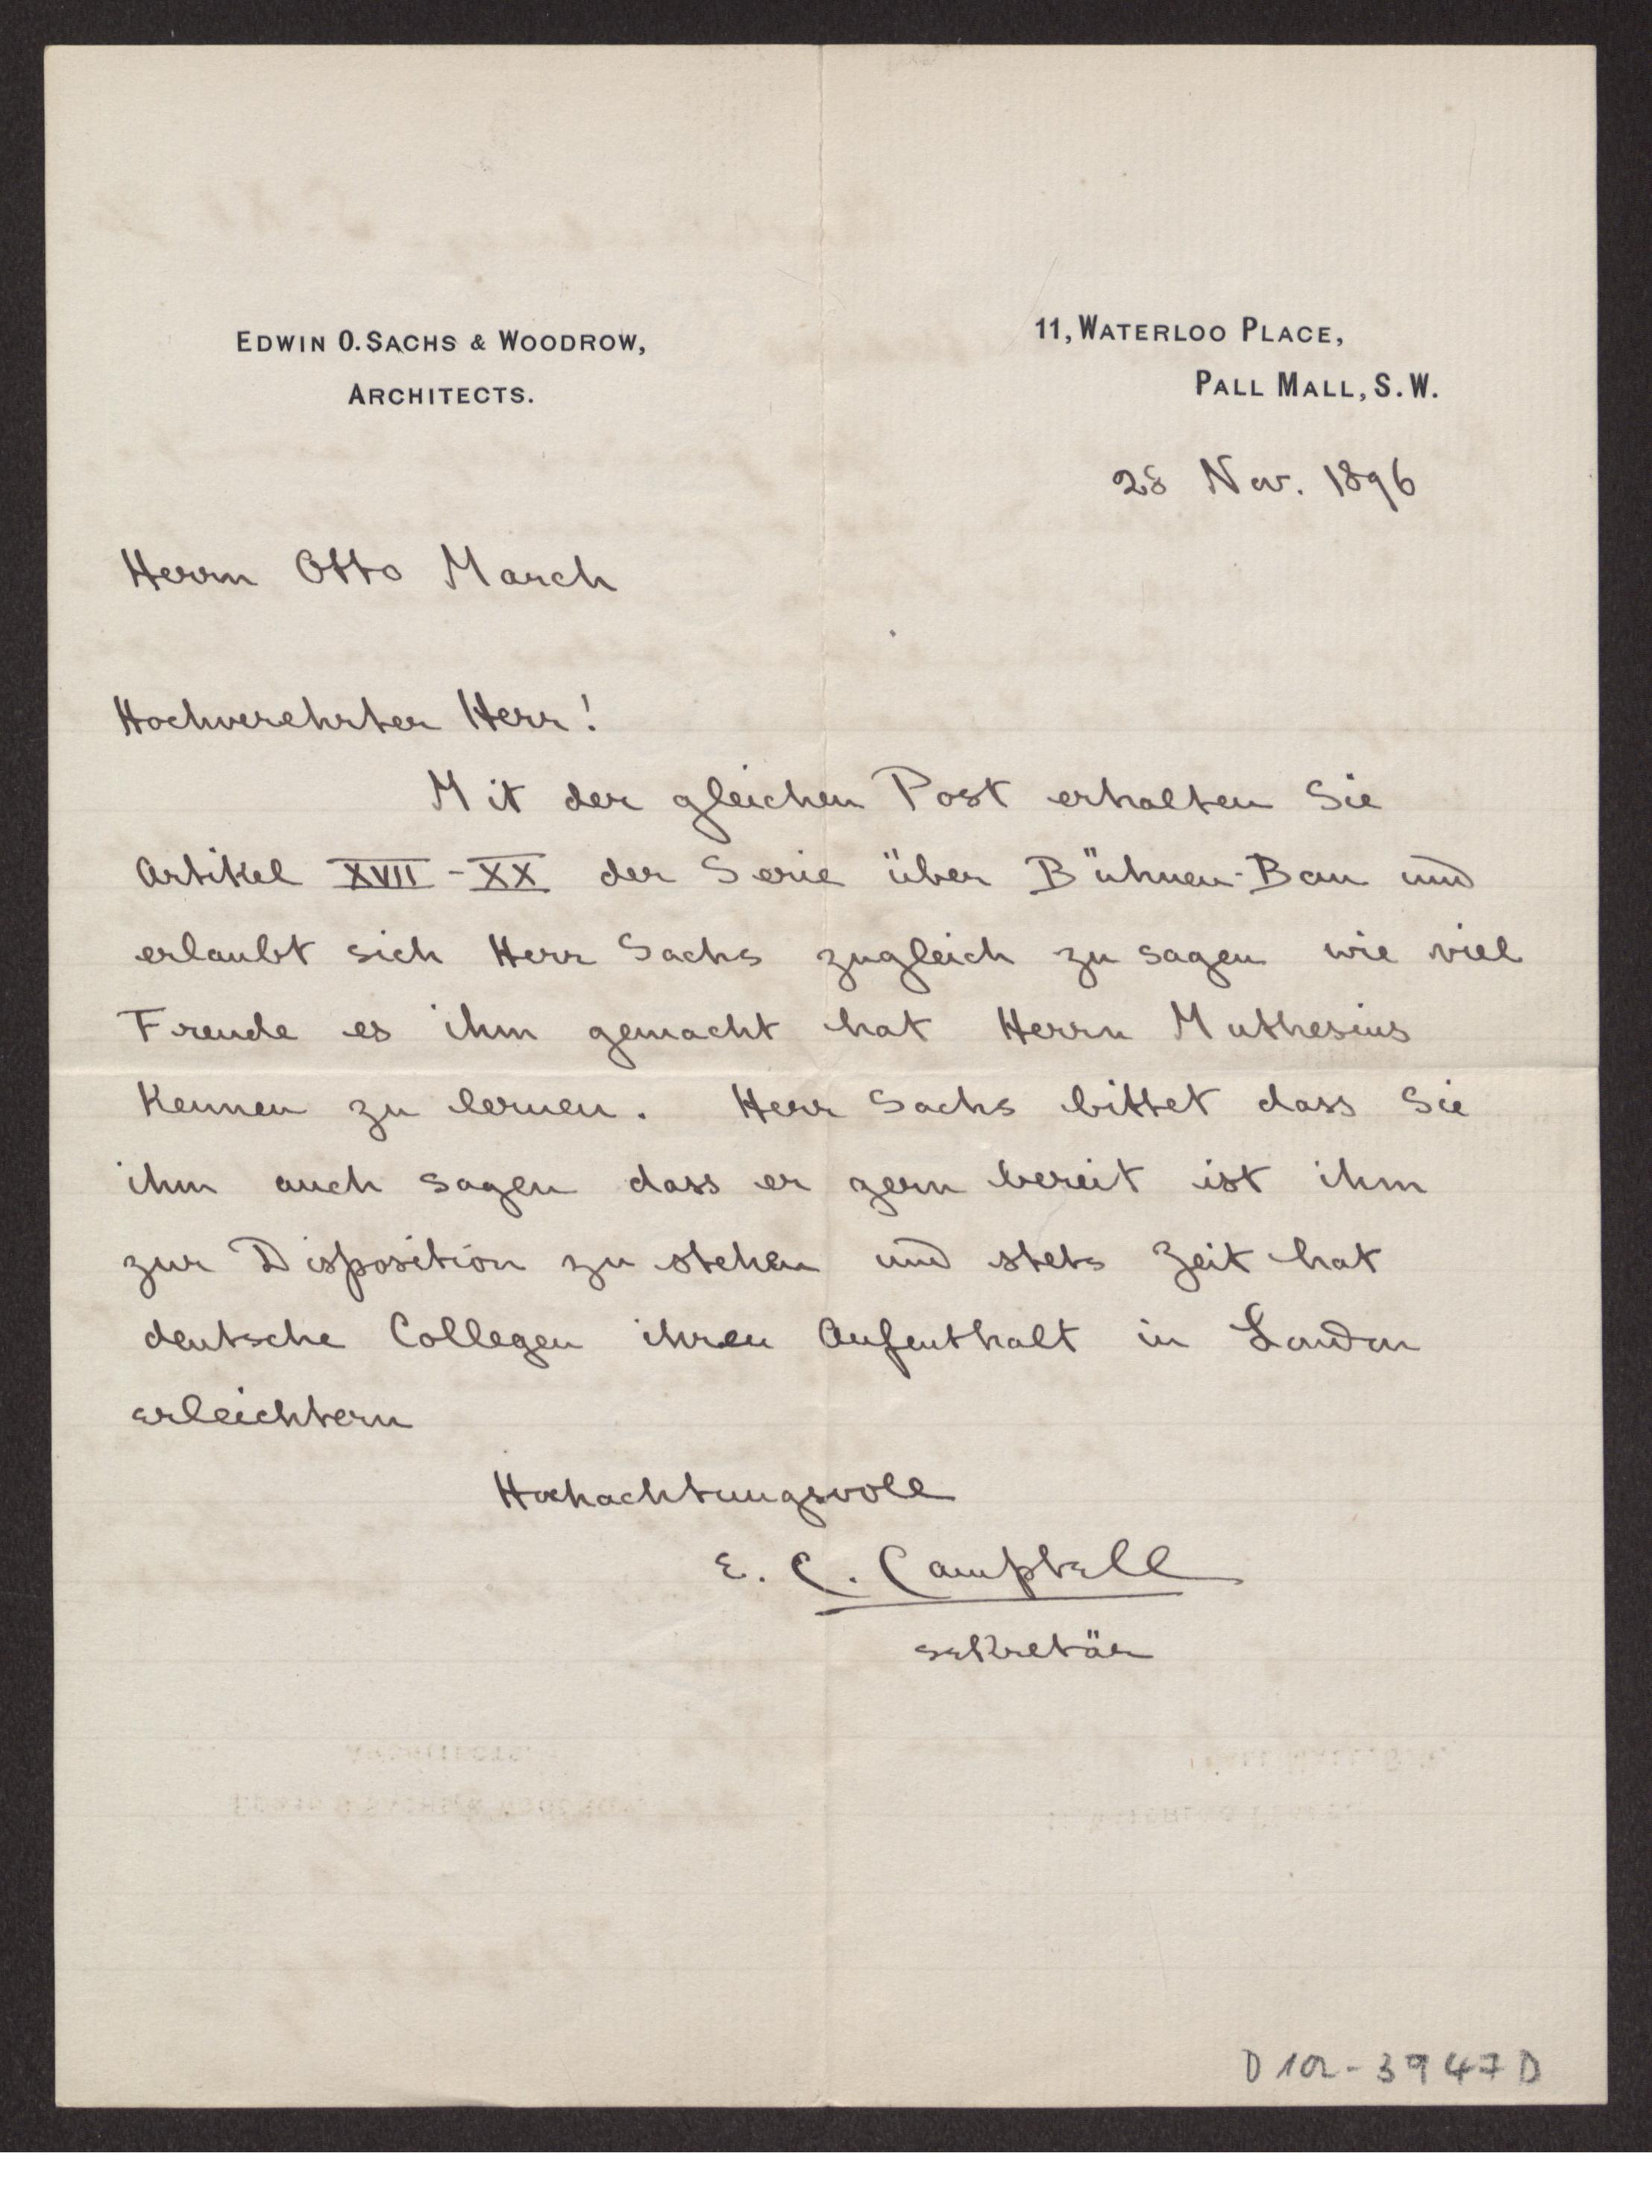 EDWIN O. SACHS & WOODROW,
ARCHITECTS.
11, WATERLOO PLACE,
PALL MALL, S.W.
28 Nov. 1896
Herrn Otto March
Hochverehrter Herr!
Mit der gleichen Post erhalten Sie
Artikel XVII - XX der Serie über Bühnen-Bau und
erlaubt sich Herr Sachs zugleich zu sagen wie viel
Freude es ihm gemacht hat Herrn Muthesius
Kennen zu lernen. Herr Sachs bittet dass Sie
ihm auch sagen dass er gern bereit ist ihm
zur Disposition zu stehen und stets Zeit hat
deutsche Collegen ihren Aufenthalt in London
erleichtern
Hochachtungsvoll
E. C. Campbell
Sekretär
D 102-3947 D